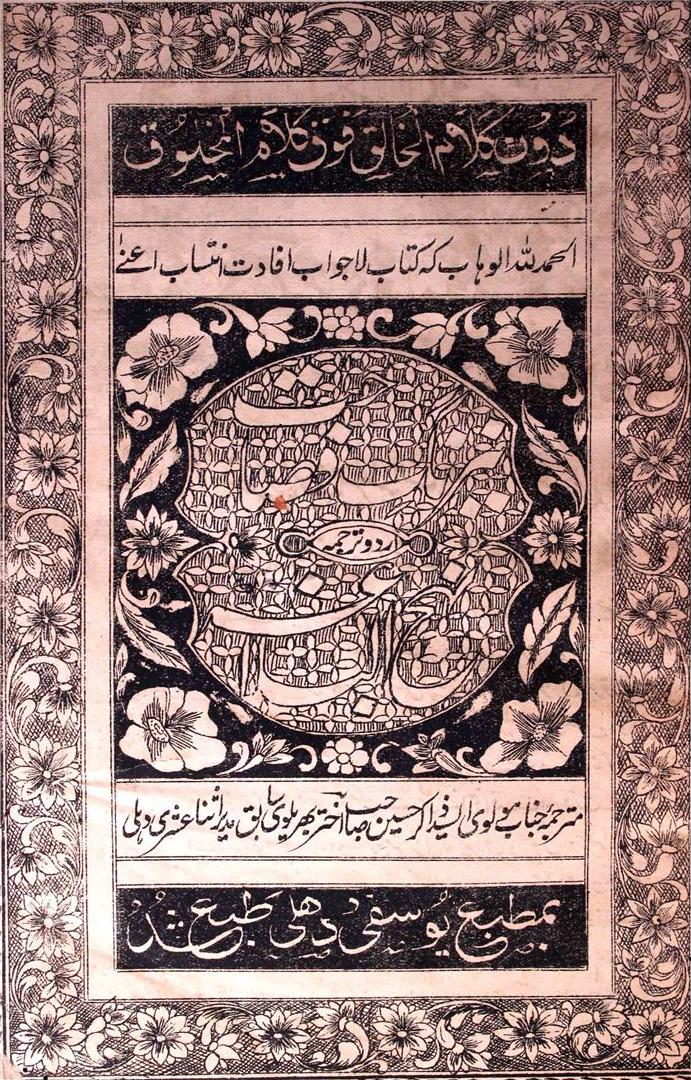 دُوْنَ کَلَامِ الْخَالِقِ فَوْقَ کَلَامِ الْمَخْلُوْقِ
الحمد للہ الوہاب کہ کتاب لاجواب افادت انتساب اعنے
نیرنگ فصاحت
اردو ترجمہ
نہج البلاغت
مترجمۂ جناب مولوی السید ذاکر حسین صاحب اختر بھریلوی سابق مدیر اثنا عشری دہلی
بمطبع یوسفی دھلی طبع شُد